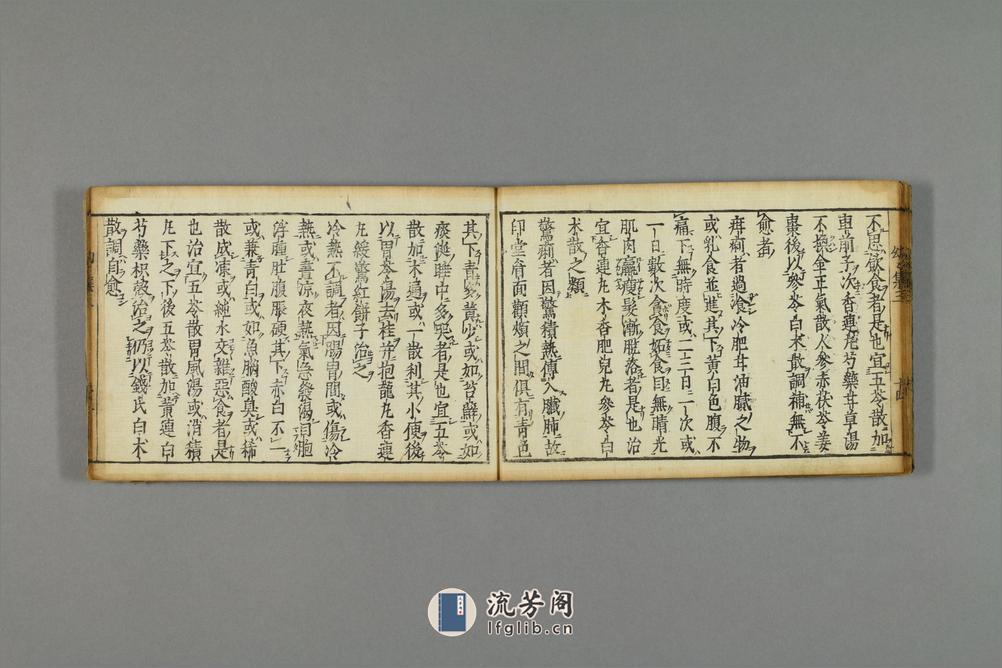 不思飲食者是也宜五苓散加
車前子次香連丸芍藥甘草湯
不換金正氣散人參赤茯苓姜
棗後以參苓白朮散調補無不
愈者
疳痢者過飡冷肥甘油膩之物
或乳食並進其下黃白色腹不
痛下無時度或二三日二一次或
一日數次食食妬食目無睛光
肌肉羸瘦髮漸脫落者是也治
宜香連丸木香肥兒丸參苓白
朮散之類
驚痢者因驚積熱傳入臟腑故
印堂脣面顴頰之間俱有青色
其下青多黃少或如苔蘚或如
痰涎睡中多哭者是也宜五苓
散加木通或一散利其小便後
以胃苓湯去桂并抱龍丸香連
丸緩驚紅餅子治之
冷熱不調者因腸胃間或傷冷
熱或晝涼夜熱氣急發渴目胞
浮腫肚腹脹硬其下赤白不一
或兼青白或如魚腦酸臭或稀
散成凍或純水交雜惡食者是
也治宜五苓散胃風湯或消積
丸下之下後五苓散加黃連白
芍藥枳殼治之仍以錢氏白朮
散調自愈
流芳阁
lfglib.cn